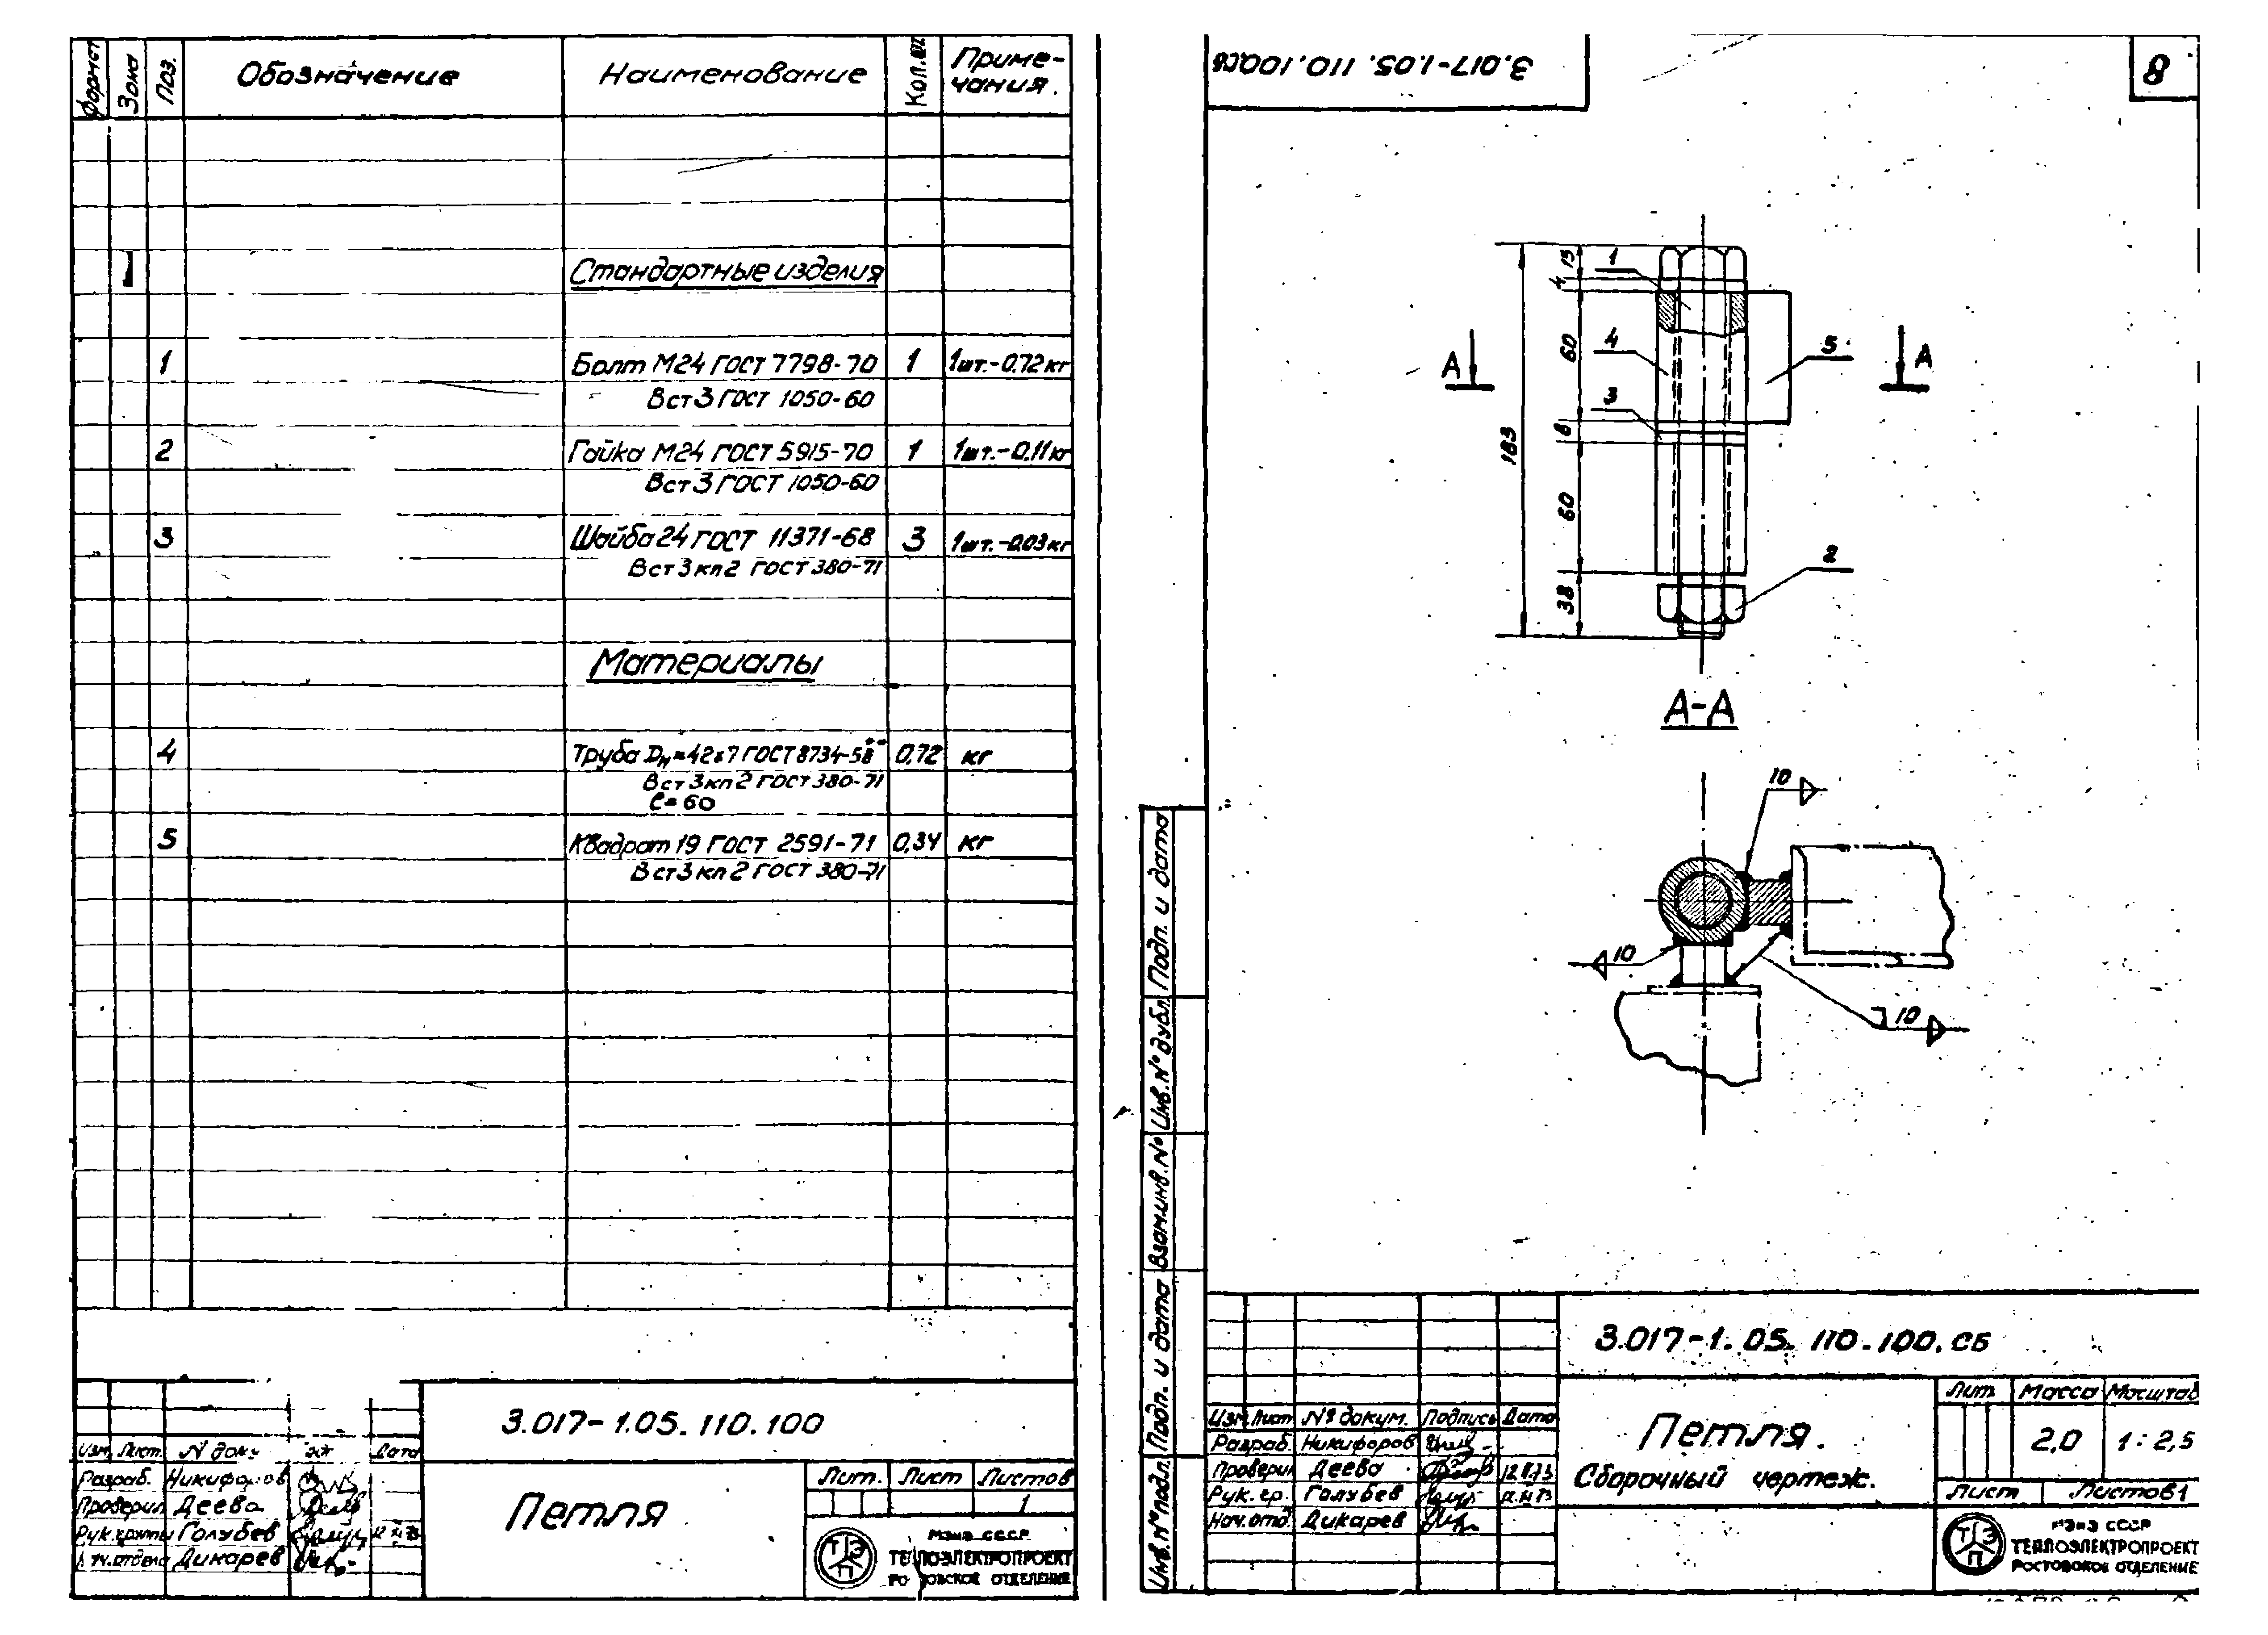 Формат Зона Поз. Обозначение Наименование Кол. Приме-
чания.
Стандартные изделия
1 Болт М24 ГОСТ 7798-70 1 1шт.-0,72 кг
Вст3 ГОСТ 1050-60
2 Гайка М24 ГОСТ 5915-70 1 1шт.-0,11 кг
Вст3 ГОСТ 1050-60
3 Шайба 24 ГОСТ 11371-68 3 1шт.-0,03 кг
Вст3кп2 ГОСТ 380-71
Материалы
4 Труба Dн=42х7 ГОСТ 8734-58** 0,72 кг
Вст3кп2 ГОСТ 380-71
ℓ=60
5 Квадрат 19 ГОСТ 2591-71 0,34 кг
Вст3кп2 ГОСТ 380-71
3.017-1.05.110.100
Изм. Лист. N доку Дата
Разраб. Никифоров
Проверил Деева
Рук.группы Голубев
Дикарев
Петля
Лит. Лист Листов
1
ТЭП
Мэиэ СССР
ТЕПЛОЭЛЕКТРОПРОЕКТ
ОТДЕЛЕНИЕ
3.017-1.05.110.100СБ
8
15
4
60
8
60
38
183
1
4
3
5
2
А А
А-А
10
10
10
Подп. и дата
Инв.N° дубл.
Взам.инв.N°
Подп. и дата
Инв.N° подл.
3.017-1.05.110.100.СБ
Изм. Лист N° докум. Подпись Дата
Разраб. Никифоров
Проверил Деева
Рук.гр. Голубев
Нач.отд. Дикарев
Петля.
Сборочный чертеж.
Лит Масса Масштаб
2,0 1:2,5
Лист Листов 1
ТЭП
МЭиЭ СССР
ТЕПЛОЭЛЕКТРОПРОЕКТ
РОСТОВСКОЕ ОТДЕЛЕНИЕ